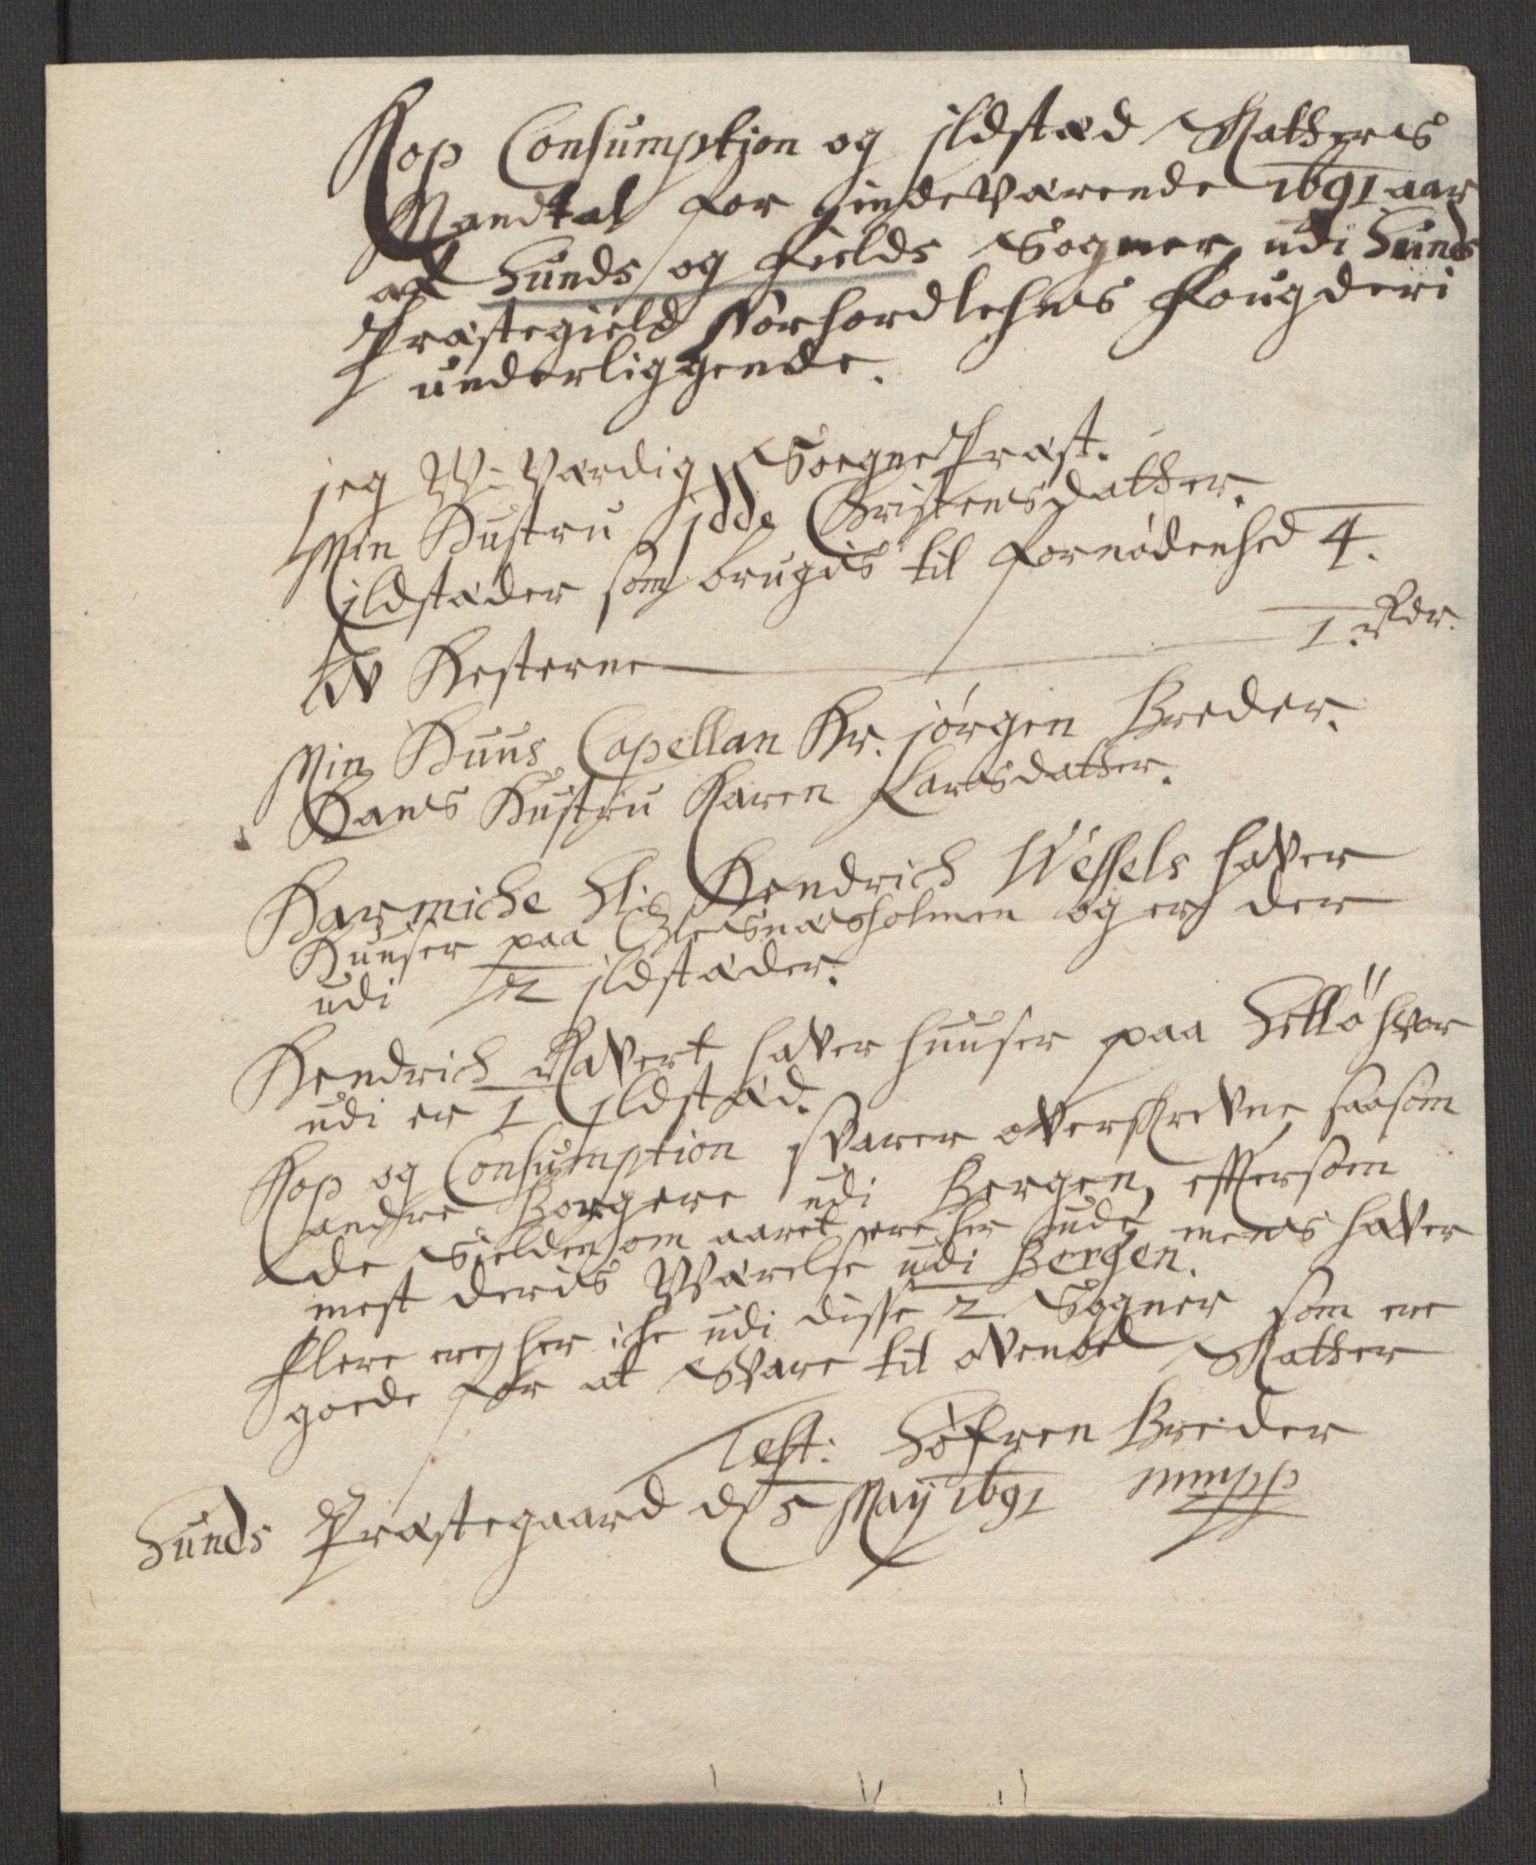 Kop Consumptjon og jldstæd Skatteres
Mandtal for jndeværende 1691 aar
af Sunds og Fields Sogner udi Sunds
Præstegield Norhordlehns Fougderi
underliggende.
jeg W-Værdig SoegnePræst.
Min Hustru jdde Christensdatter.
jldstæder som brugis til fornødenhed 4.
Hesterne 1 Rdr.
Min Huus Capellan Hr. jörgen Breder.
Hans Hustru Karen Larsdatter.
Hendrich Wessels haver
Huuser paa Glesnæsholmen og er der
udi 2 jldstæder.
Hendrich Kavert haver huuser paa Sellö hvor
udi er 1 jldstæd.
Kop og Consumption svarer overskrevne saasom
andre Borgere udi Bergen, effersom
de Sielden om aaret ere her ude mens haver
mest deris Værelse udi Bergen.
flere ere her iche udi disse 2 Sogner som ere
goede for at Svare til ovenbd Skatter
Test: Söfren Breder
Sunds Præstegaard d 5 Maij 1691 mmpp